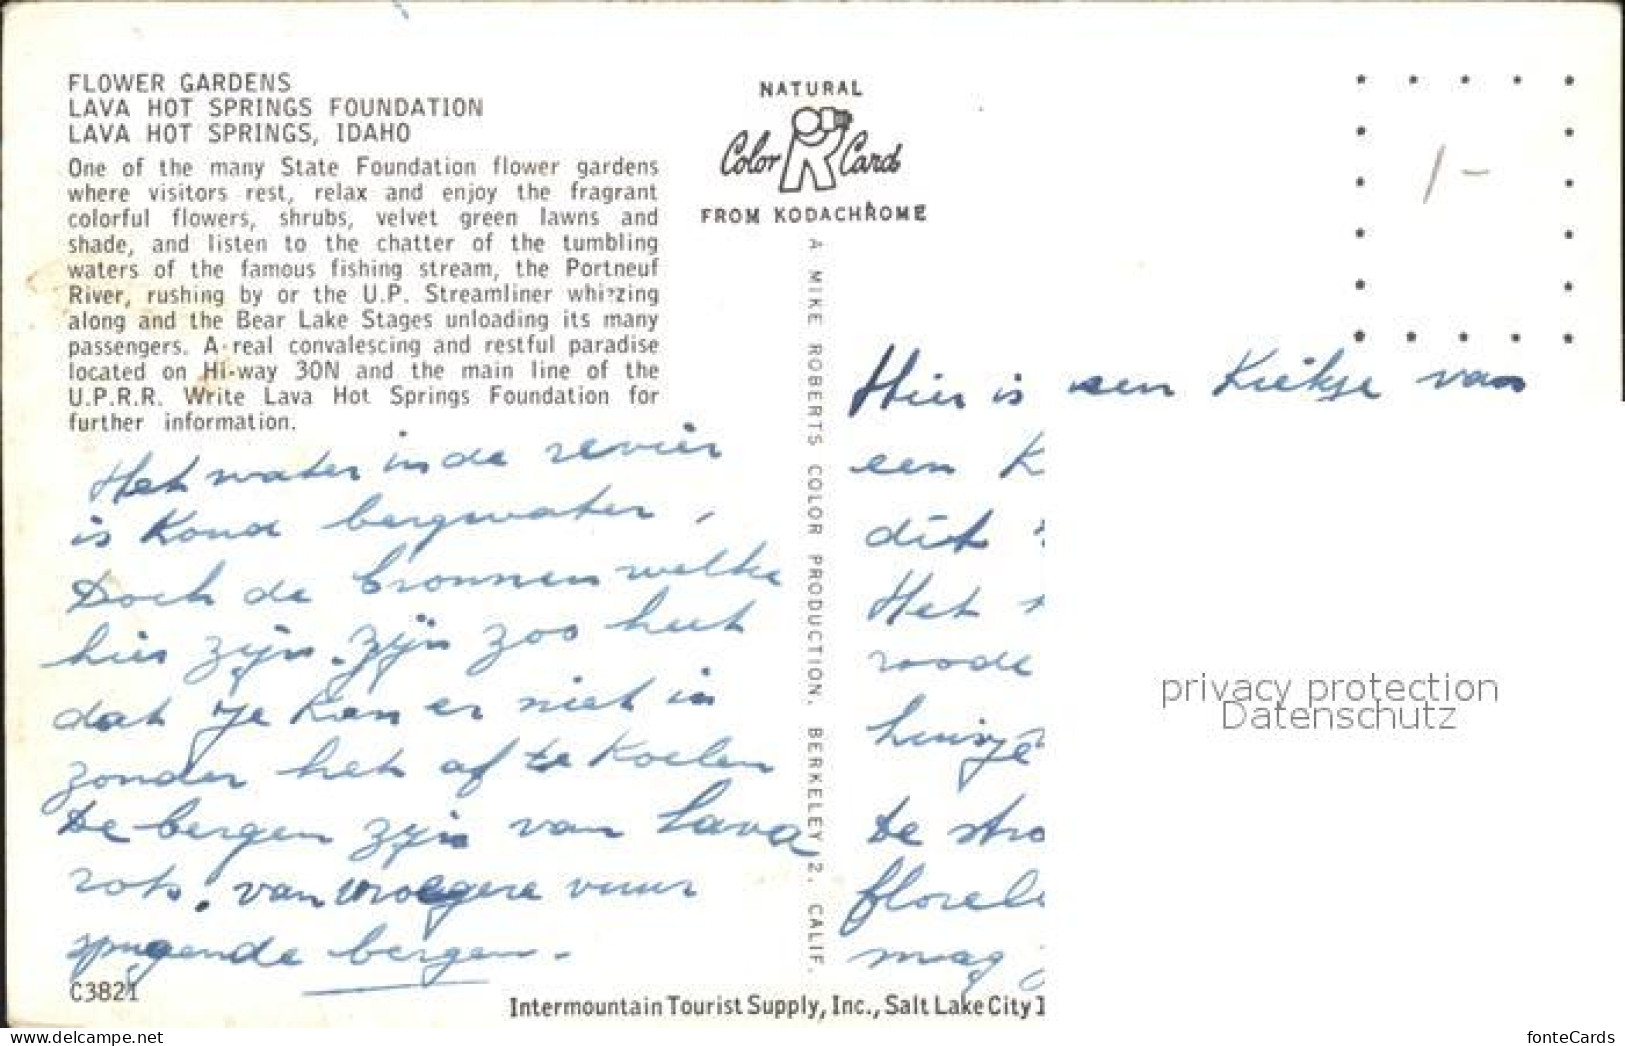 FLOWER GARDENS
LAVA HOT SPRINGS FOUNDATION
LAVA HOT SPRINGS, IDAHO
One of the many State Foundation flower gardens
where visitors rest, relax and enjoy the fragrant
colorful flowers, shrubs, velvet green lawns and
shade, and listen to the chatter of the tumbling
waters of the famous fishing stream, the Portneuf
River, rushing by or the U.P. Streamliner whizzing
along and the Bear Lake Stages unloading its many
passengers. A real convalescing and restful paradise
located on Hi-way 30N and the main line of the
U.P.R.R. Write Lava Hot Springs Foundation for
further information.
Het water in de revier
is Koud bergwater,
Doch de bronnen welke
hier zijn. zijn zoo heet
dat je kan er niet in
zonder het af te Koelen
De bergen zijn van Lava
rots. van vroegere vuur
spugende bergen.
C3821
NATURAL
Color Cards
FROM KODACHROME
A MIKE ROBERTS COLOR PRODUCTION, BERKELEY 2, CALIF.
1-
Hier is een Kiekje van
een K
dit
Het
roode
huisje
De stro
mag
privacy protection
Datenschutz
Intermountain Tourist Supply, Inc., Salt Lake City 1
www.delcampe.net
fonteCards